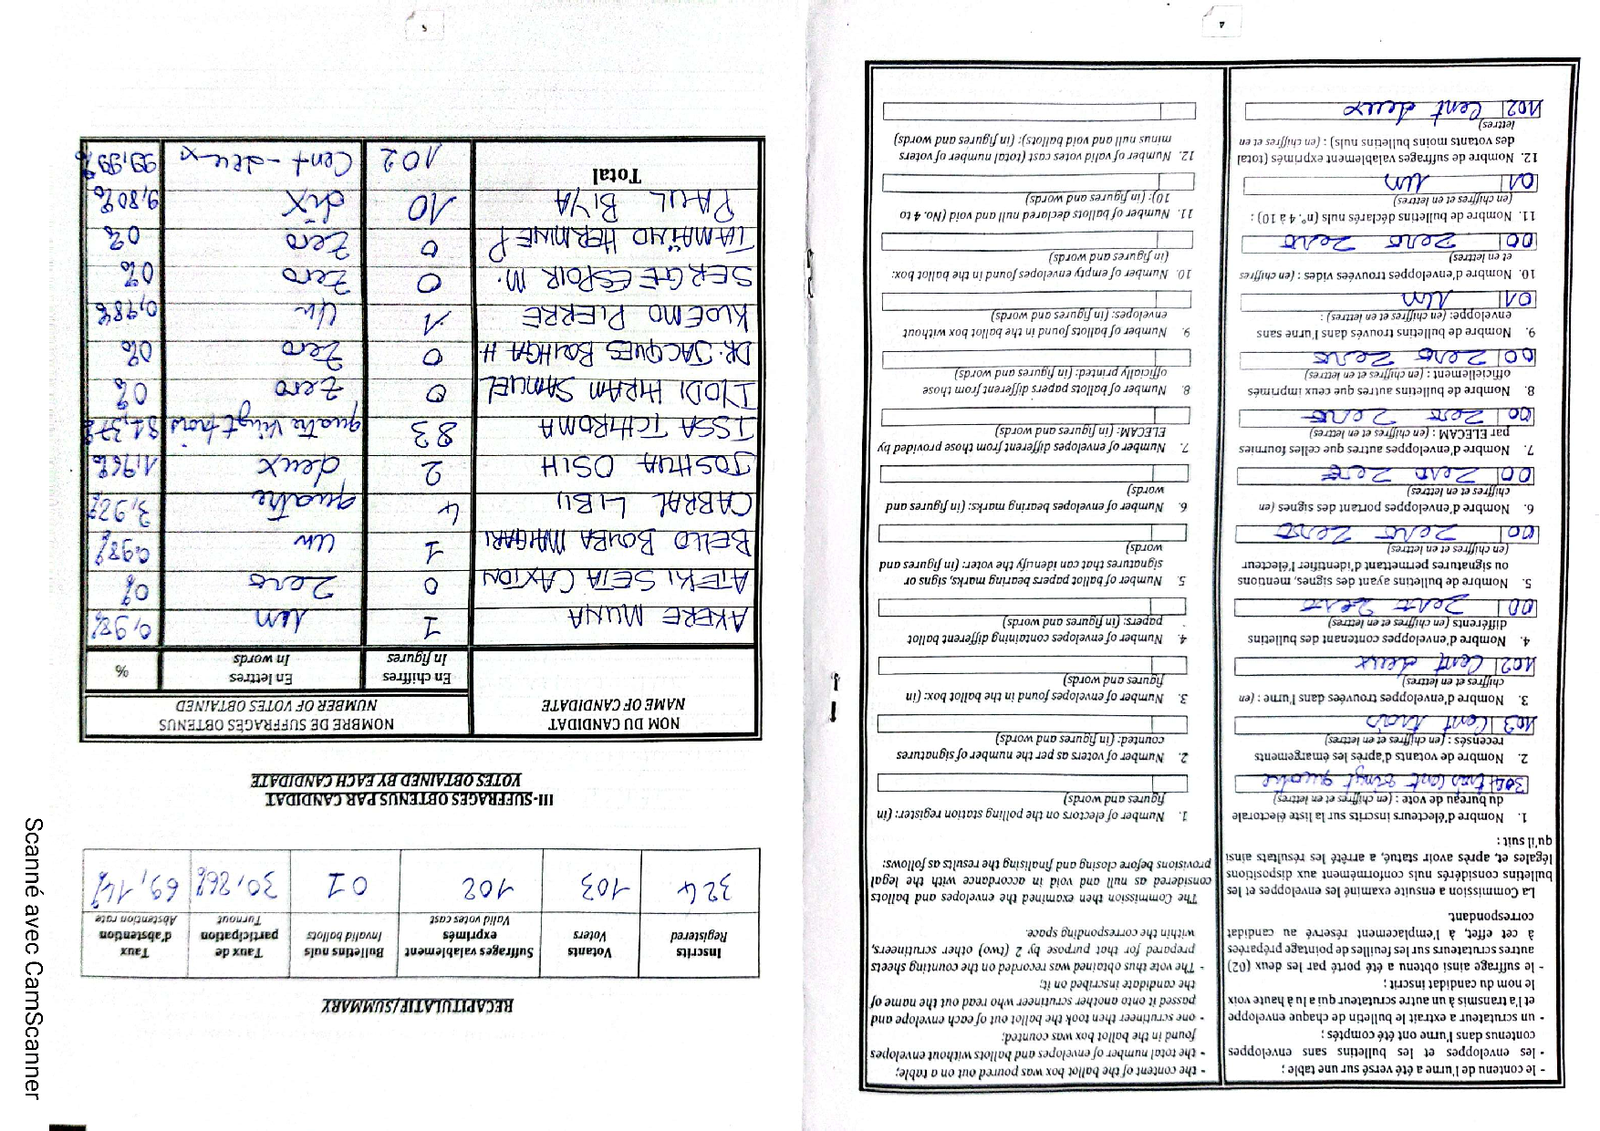 4
- le contenu de l'urne a été versé sur une table ;
- les enveloppes et les bulletins sans enveloppes
contenus dans l'urne ont été comptés ;
- un scrutateur a extrait le bulletin de chaque enveloppe
et l'a transmis à un autre scrutateur qui a lu à haute voix
le nom du candidat inscrit ;
- le suffrage ainsi obtenu a été porté par les deux (02)
autres scrutateurs sur les feuilles de pointage préparées
à cet effet, à l'emplacement réservé au candidat
correspondant.
La Commission a ensuite examiné les enveloppes et les
bulletins considérés nuls conformément aux dispositions
légales et, après avoir statué, a arrêté les résultats ainsi
qu'il suit :
1. Nombre d'électeurs inscrits sur la liste électorale
du bureau de vote : (en chiffres et en lettres)
324 trois cent vingt quatre
2. Nombre de votants d'après les émargements
recensés : (en chiffres et en lettres)
103 Cent trois
3. Nombre d'enveloppes trouvées dans l'urne : (en
chiffres et en lettres)
102 Cent deux
4. Nombre d'enveloppes contenant des bulletins
différents (en chiffres et en lettres)
00 Zero Zero
5. Nombre de bulletins ayant des signes, mentions
ou signatures permettant d'identifier l'électeur
(en chiffres et en lettres)
00 Zero Zero
6. Nombre d'enveloppes portant des signes (en
chiffres et en lettres)
00 Zero Zero
7. Nombre d'enveloppes autres que celles fournies
par ELECAM : (en chiffres et en lettres)
00 Zero Zero
8. Nombre de bulletins autres que ceux imprimés
officiellement : (en chiffres et en lettres)
00 Zero Zero
9. Nombre de bulletins trouvés dans l'urne sans
enveloppe: (en chiffres et en lettres) :
01 Un
10. Nombre d'enveloppes trouvées vides : (en chiffres
et en lettres)
00 Zero Zero
11. Nombre de bulletins déclarés nuls (n°. 4 à 10) :
(en chiffres et en lettres)
01 Un
12. Nombre de suffrages valablement exprimés (total
des votants moins bulletins nuls) : (en chiffres et en
lettres)
102 Cent deux
- the content of the ballot box was poured out on a table;
- the total number of envelopes and ballots without envelopes
found in the ballot box was counted;
- one scrutineer then took the ballot out of each envelope and
passed it onto another scrutineer who read out the name of
the candidate inscribed on it;
- The vote thus obtained was recorded on the counting sheets
prepared for that purpose by 2 (two) other scrutineers,
within the corresponding space.
The Commission then examined the envelopes and ballots
considered as null and void in accordance with the legal
provisions before closing and finalising the results as follows:
1. Number of electors on the polling station register: (in
figures and words)
2. Number of voters as per the number of signatures
counted: (in figures and words)
3. Number of envelopes found in the ballot box: (in
figures and words)
4. Number of envelopes containing different ballot
papers: (in figures and words)
5. Number of ballot papers bearing marks, signs or
signatures that can identify the voter: (in figures and
words)
6. Number of envelopes bearing marks: (in figures and
words)
7. Number of envelopes different from those provided by
ELECAM: (in figures and words)
8. Number of ballots papers different from those
officially printed: (in figures and words)
9. Number of ballots found in the ballot box without
envelopes: (in figures and words)
10. Number of empty envelopes found in the ballot box:
(in figures and words)
11. Number of ballots declared null and void (No. 4 to
10): (in figures and words)
12. Number of valid votes cast (total number of voters
minus null and void ballots): (in figures and words)
5
RECAPITULATIF/SUMMARY
Inscrits Registered | Votants Voters | Suffrages valablement exprimés Valid votes cast | Bulletins nuls Invalid ballots | Taux de participation Turnout | Taux d'abstention Abstention rate
324 | 103 | 102 | 01 | 30,86% | 69,14%
III-SUFFRAGES OBTENUS PAR CANDIDAT
VOTES OBTAINED BY EACH CANDIDATE
NOM DU CANDIDAT NAME OF CANDIDATE | NOMBRE DE SUFFRAGES OBTENUS NUMBER OF VOTES OBTAINED
En chiffres In figures | En lettres In words | %
AKERE MUNA | 1 | un | 0,98%
ATEKI SETA CAXTON | 0 | Zero | 0%
BELLO BOUBA MAIGARI | 1 | un | 0,98%
CABRAL LIBII | 4 | quatre | 3,92%
JOSHUA OSIH | 2 | deux | 1,96%
ISSA TCHIROMA | 83 | quatre vingt trois | 81,37%
IYODI HIRAM SAMUEL | 0 | zero | 0%
DR. JACQUES BOUHGA H | 0 | Zero | 0%
KWEMO PIERRE | 1 | Un | 0,98%
SERGE ESPOIR M. | 0 | Zero | 0%
TAMAÏNO HERMINE P | 0 | Zero | 0%
PAUL BIYA | 10 | dix | 9,80%
Total | 102 | Cent-deux | 99,99%
Scanné avec CamScanner